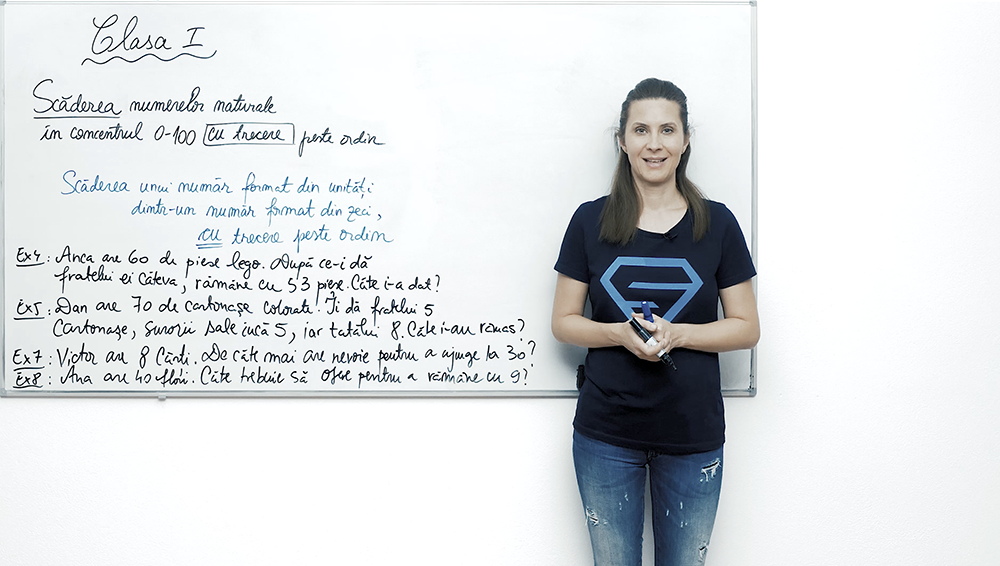 Clasa I
Scăderea numerelor naturale
în concentrul 0-100 cu trecere peste ordin
Scăderea unui număr format din unități
dintr-un număr format din zeci,
cu trecere peste ordin
Ex4: Anca are 60 de piese lego. După ce-i dă
fratelui ei câteva, rămâne cu 53 piese. Câte i-a dat?
Ex5: Dan are 70 de cartonașe colorate. Îi dă fratelui 5
cartonașe, surorii sale încă 5, iar tatălui 8. Câte i-au rămas?
Ex7: Victor are 8 cărți. De câte mai are nevoie pentru a ajunge la 30?
Ex8: Ana are 40 flori. Câte trebuie să ofere pentru a rămâne cu 9?